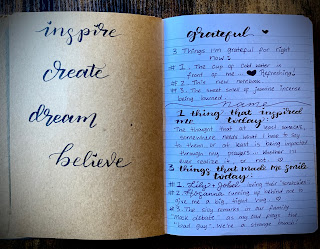 inspire
create
dream
believe
grateful
3 Things I'm grateful for right
now:
#1. The cup of cold water in
front of me... Refreshing!
#2. This new notebook
#3. The sweet smell of jasmine incense
being burned
1 thing that inspired
me today:
The thought that at
somewhere needs what I have to say
to them or at least is being impacted
through my prayers whether I
ever realize it or not
3 things that made me smile
today:
#1. Lily + losing their
#2. running up behind me to
give me a big, tight hug
#3. The silly remarks in our family
as my dad plays the
"bad guy". We're a strange